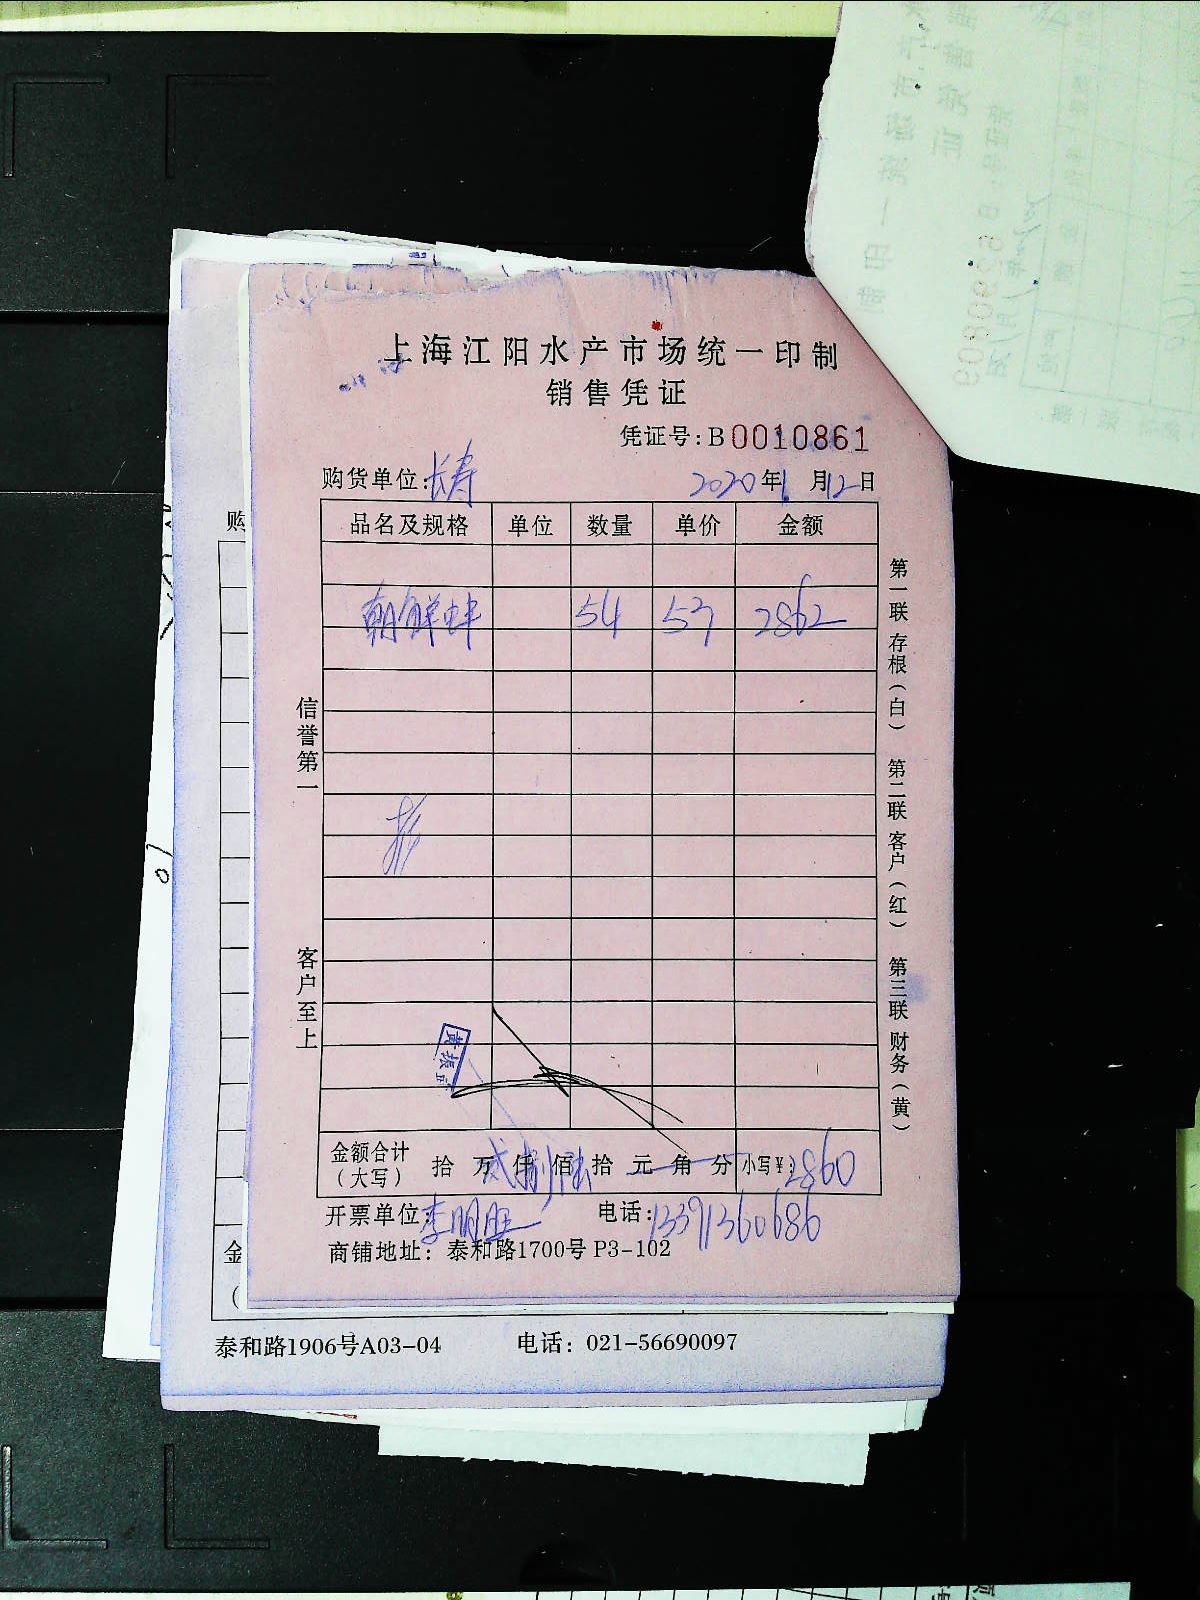 上海江阳水产市场统一印制
销售凭证
凭证号:B0010861
购货单位:长寿 2020年1月12日
品名及规格 单位 数量 单价 金额
朝鲜蚌 54 53 2862
信誉第一
客户至上
第一联 存根(白) 第二联 客户(红) 第三联 财务(黄)
金额合计
(大写) 拾 万 贰仟捌佰陆拾 元 角 分 小写¥:2860
开票单位:李明旺 电话:13391360686
商铺地址: 泰和路1700号 P3-102
购
金
(
泰和路1906号A03-04 电话: 021-56690097
10